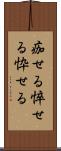 痴せる悴せ
る忰せる